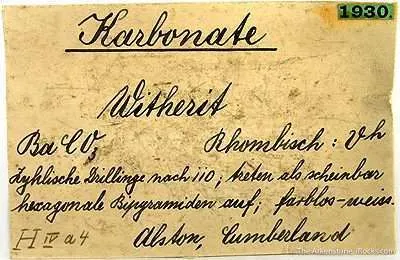 1930.
Karbonate
Witherit
BaCO₃ Rhombisch: Vh
Zyklische Drillinge nach 110; treten als scheinbar
hexagonale Bipyramiden auf; farblos-weiss.
H IV a 4 Alston, Cumberland
The Arkenstone, iRocks.com